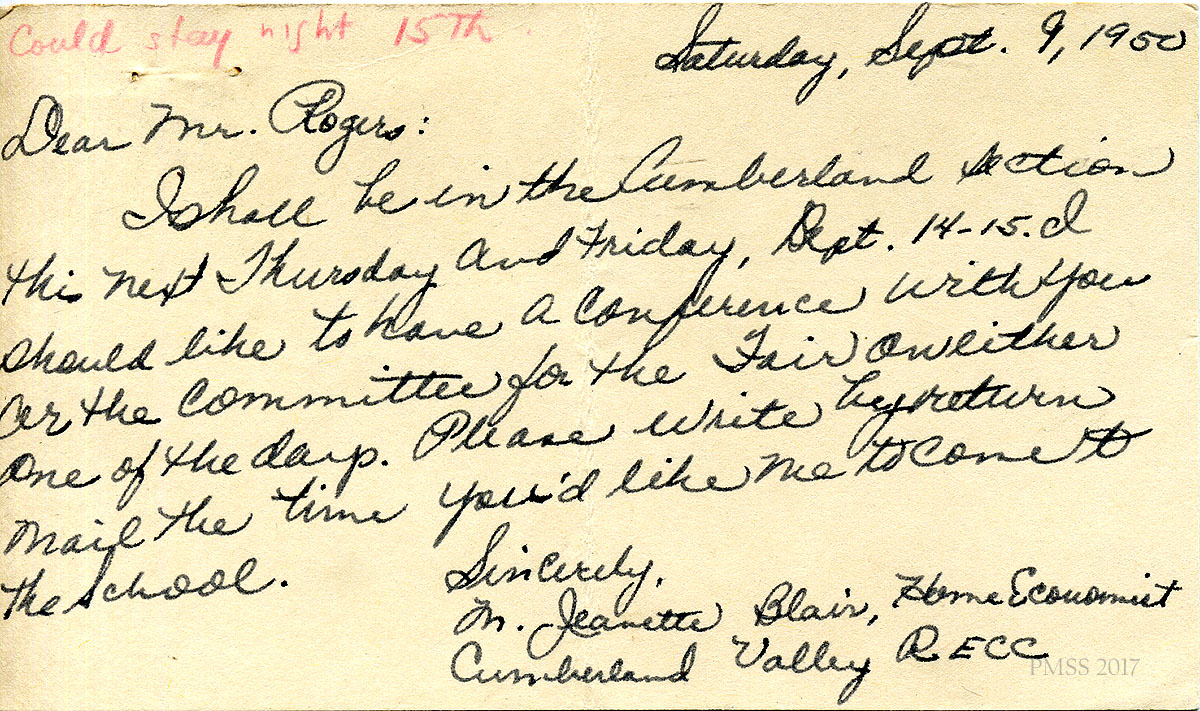 Could stay night 15th.
Saturday, Sept. 9, 1950
Dear Mr. Rogers:
I shall be in the Cumberland section
this next Thursday and Friday, Sept. 14-15. I
should like to have a conference with you
or the committee for the Fair on either
one of the days. Please write by return
mail the time you'd like me to come to
the school.
Sincerely,
M. Jeanette Blair, Home Economist
Cumberland Valley RECC
PMSS 2017